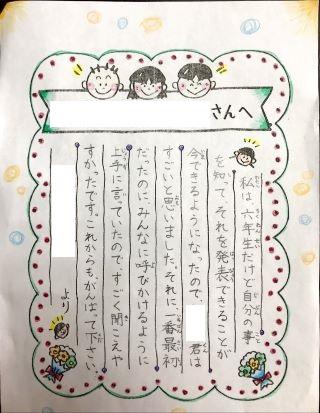 さんへ
私は、六年生だけど自分の事
を知って、それを発表できることが
今できるようになったので、 君は
すごいと思いました。それに、一番最初
だったのに、みんなに呼びかけるように
上手に言っていたので、すごく聞こえや
すかったです。これからもがんばって下さい。
より